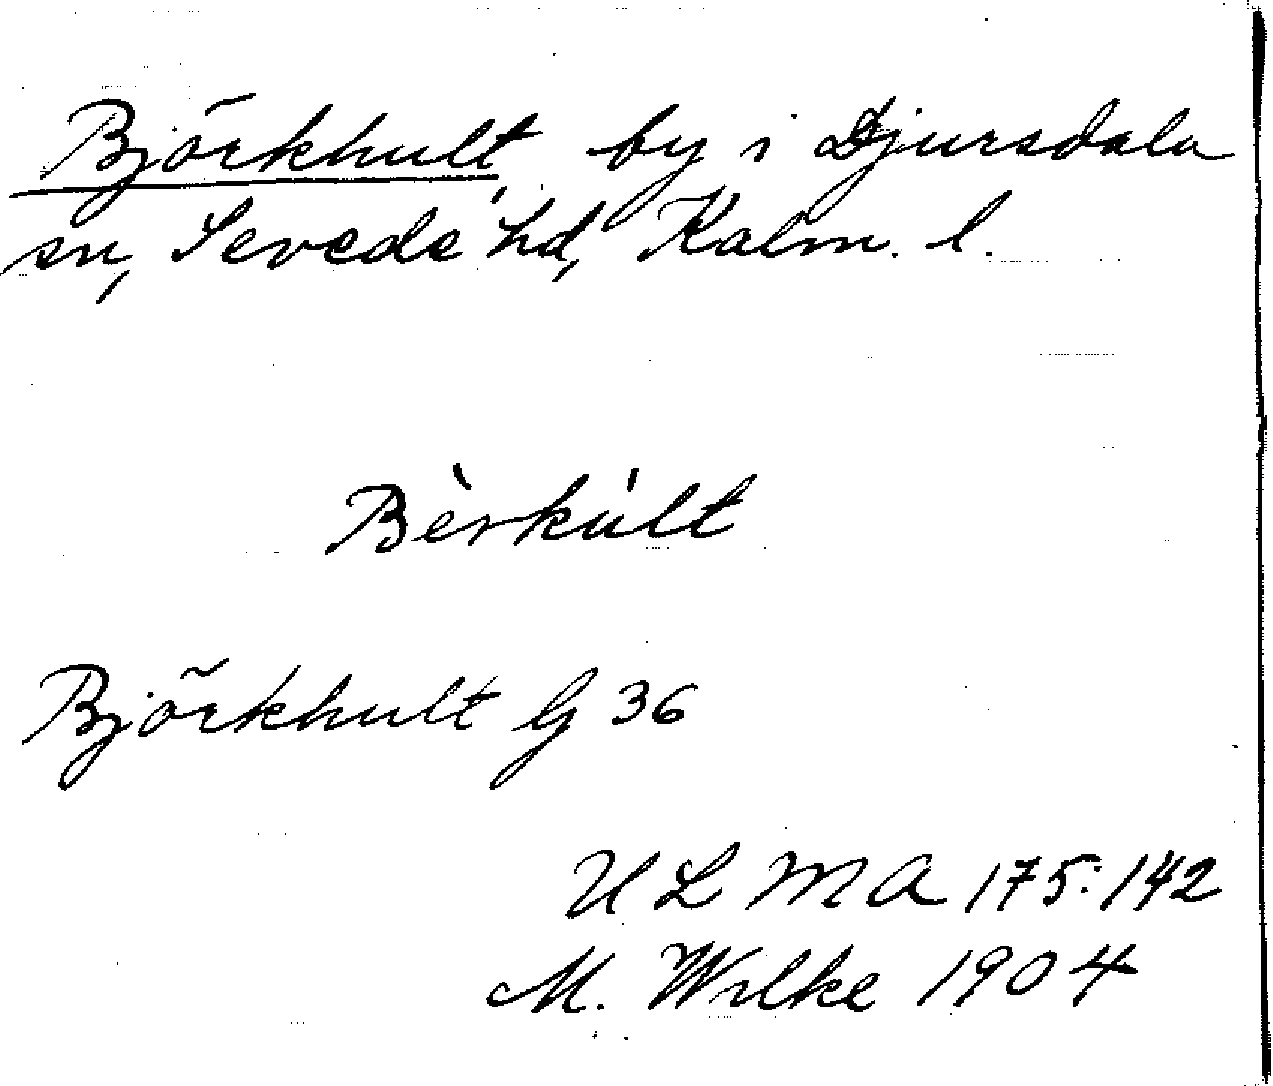 Björkhult, by i Djursdala
sn, Sevede hd, Kalm. l.
Bèrkúlt
Björkhult G 36
ULMA 175:142
M. Wilke 1904